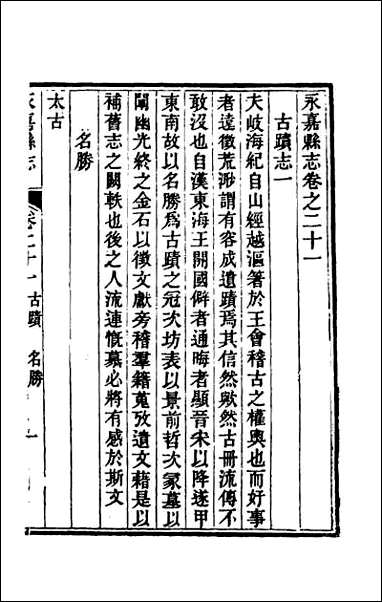 永嘉縣志卷之二十一
古蹟志一
夫岐海紀自山經越漚箸於王會稽古之權輿也而好事
者遠徵荒渺謂有容成遺蹟焉其信然歟然古冊流傳不
敢沒也自漢東海王開國僻者通晦者顯晉宋以降遂甲
東南故以名勝爲古蹟之冠次坊表以景前哲次冢墓以
闡幽光終之金石以徵文獻旁稽羣籍蒐攷遺文藉是以
補舊志之闕軼也後之人流連慨慕必將有感於斯文
名勝
太古
永嘉縣志
卷二十一 古蹟 名勝
一